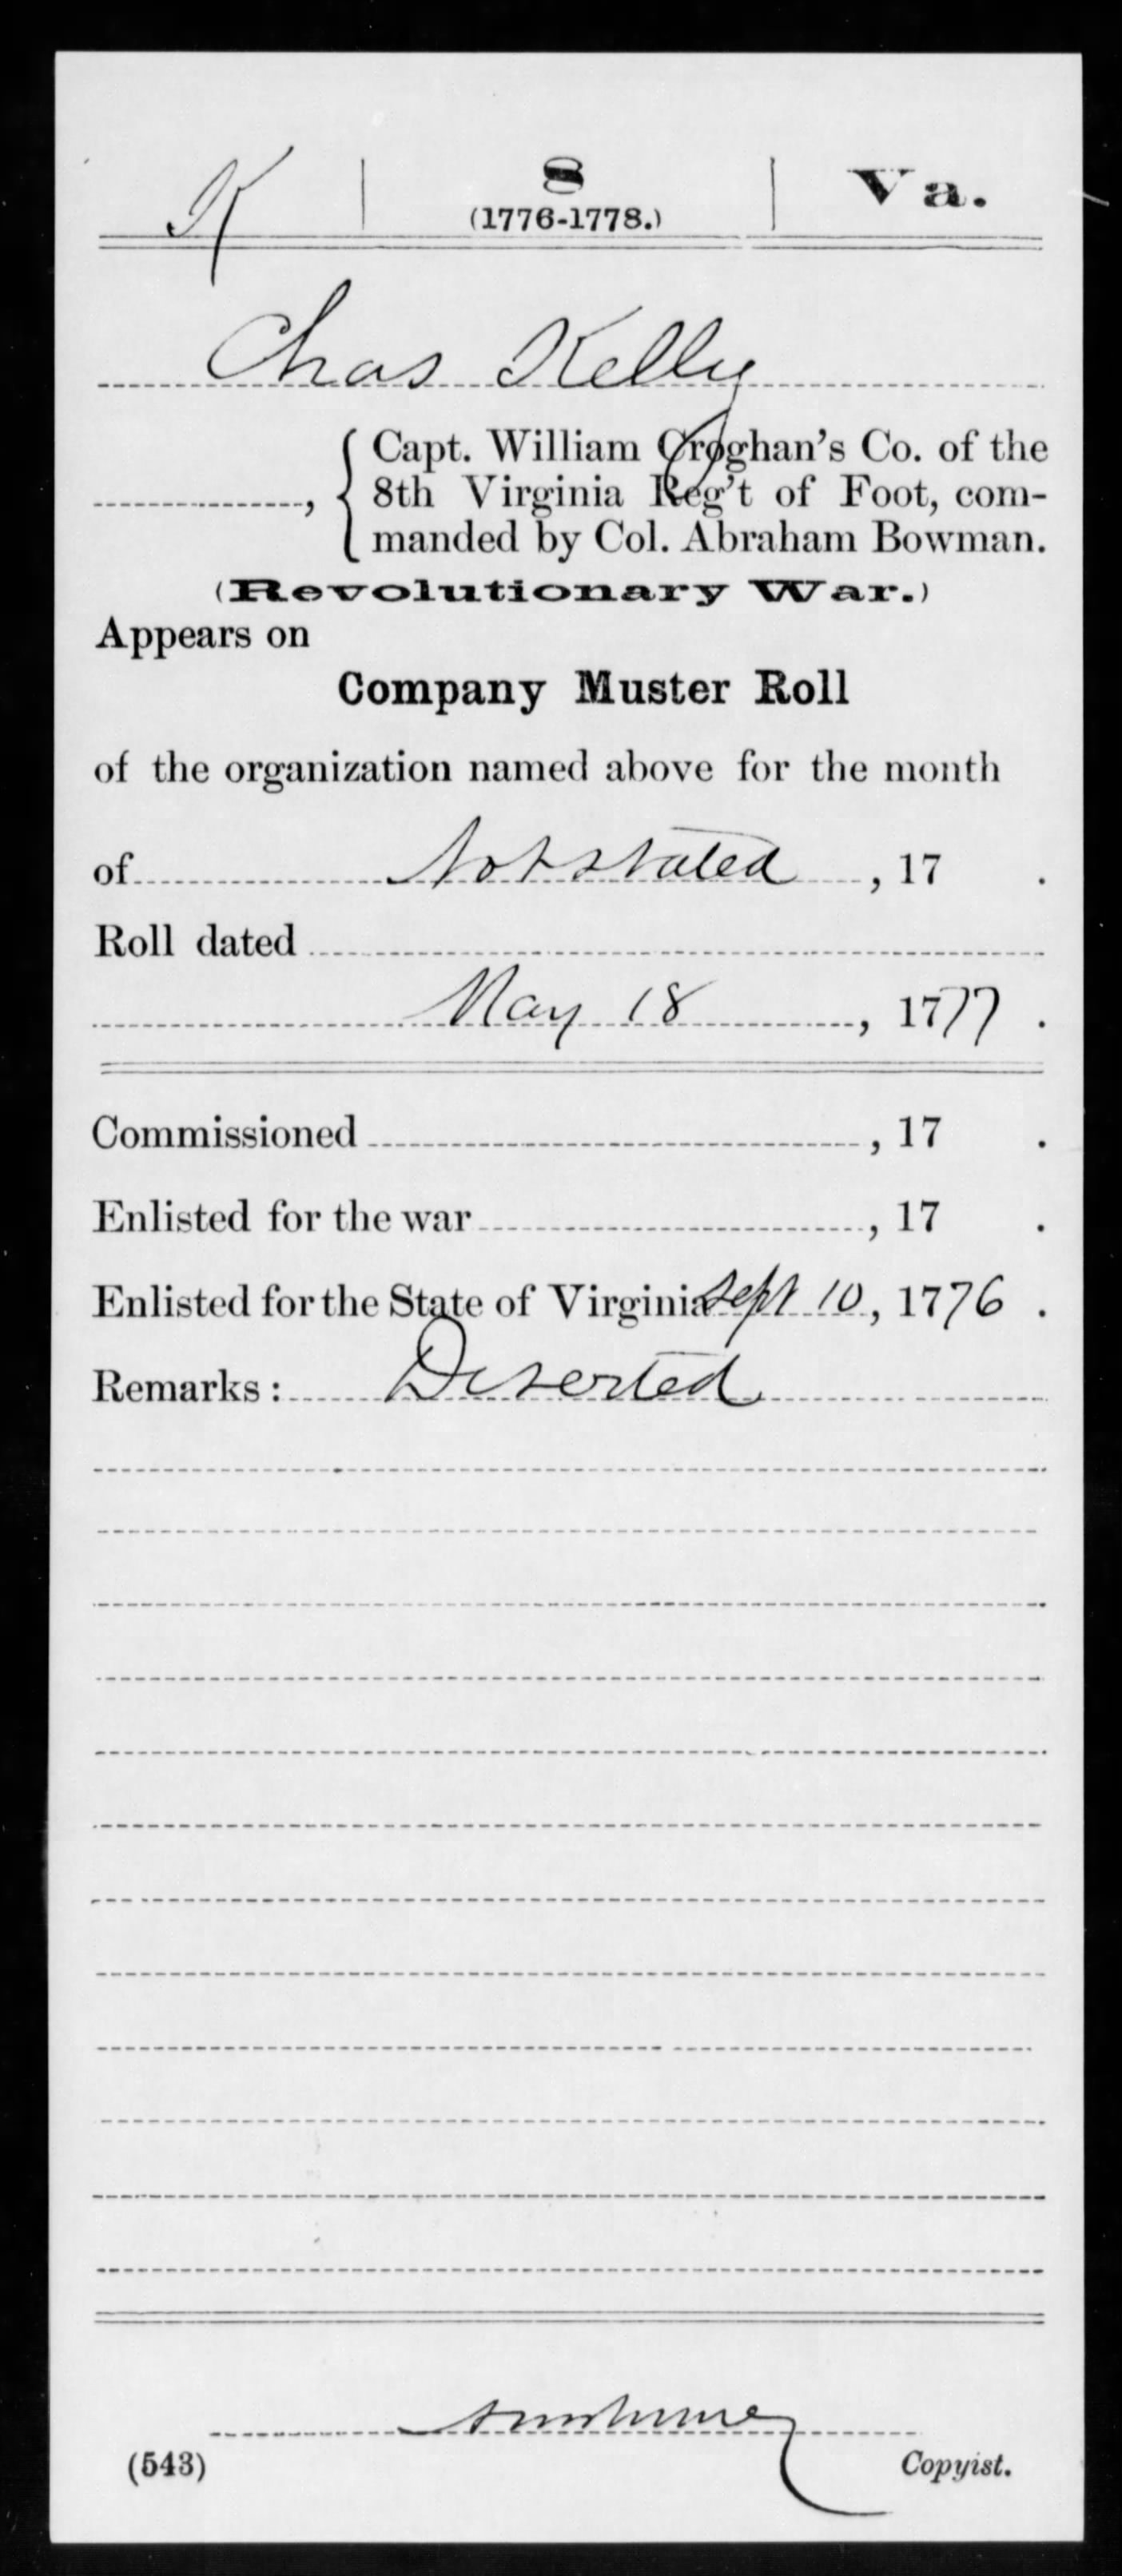 K | 8 | Va.
(1776-1778.)
Chas Kelly
Capt. William Croghan's Co. of the
, 8th Virginia Reg't of Foot, com-
manded by Col. Abraham Bowman.
(Revolutionary War.)
Appears on
Company Muster Roll
of the organization named above for the month
of Not stated, 17 .
Roll dated
May 18, 1777.
Commissioned , 17 .
Enlisted for the war , 17 .
Enlisted for the State of Virginia Sept 10, 1776.
Remarks: Deserted
(543) Copyist.